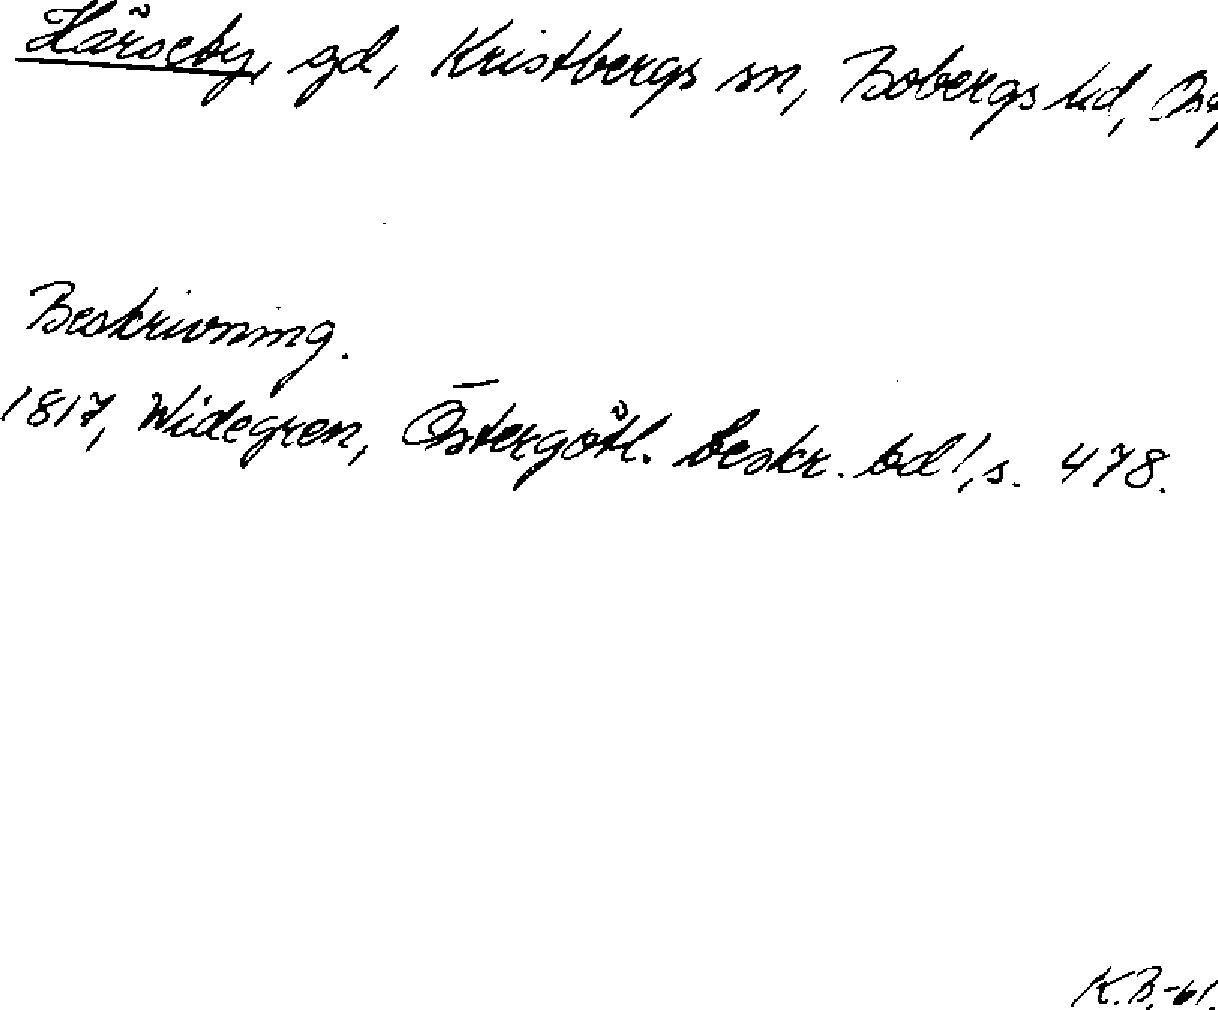 Häroeby, gd, Kristbergs sn, Bobergs hd, Ög
Beskrivning.
1817, Widegren, Östergötl. beskr. bd 1, s. 478.
K.B.-61.